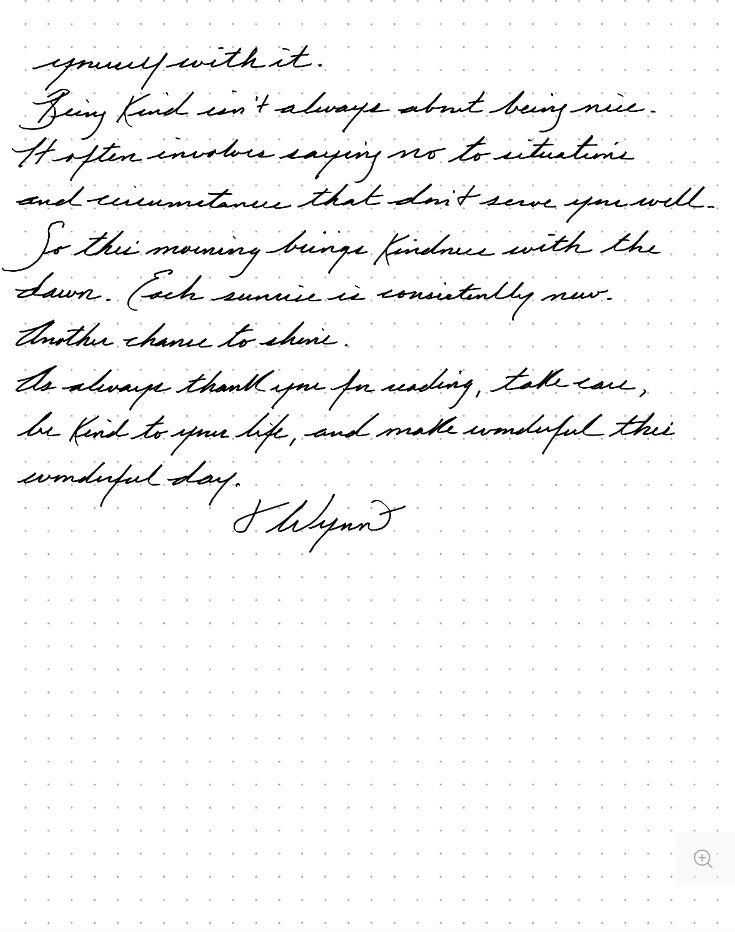 yourself with it.
Being Kind isn't always about being nice.
It often involves saying no to situations
and circumstances that don't serve you well.
So this morning brings Kindness with the
dawn. Each sunrise is consistently new.
Another chance to shine.
As always thank you for reading, take care,
be Kind to your life, and make wonderful this
wonderful day.
Wynn